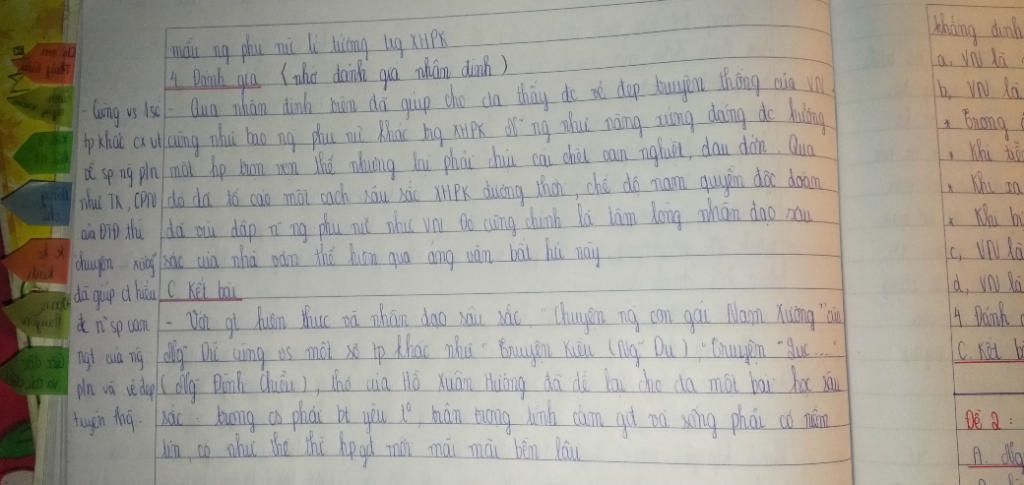 mẫu ng phụ nữ lí tưởng trg XHPK
4. Đánh giá (nhớ đánh giá nhân định)
- Qua nhân định trên đã giúp cho ta thấy đc vẻ đẹp truyền thống của VN
cũng như bao ng phụ nữ khác trg XHPK. ~ ng như nàng xứng đáng đc hưởng
một hp trọn vẹn thế nhưng lại phải chịu cái chết oan nghiệt, đau đớn. Qua
đó đã tố cáo một cách sâu sắc XHPK đương thời, chế độ nam quyền độc đoán
đã vùi dập n~ ng phụ nữ như VN. Đó cũng chính là tấm lòng nhân đạo sâu
sắc của nhà văn thể hiện qua áng văn bất hủ này
C. Kết bài
- Với gt hiện thực và nhân đạo sâu sắc. "Chuyện ng con gái Nam Xương" của
Ng~ Dữ cùng vs một số tp khác như "Truyện Kiều (Ng~ Du), "Truyện "Lục ..."
(Ng~ Đình Chiểu), thơ của Hồ Xuân Hương đã để lại cho ta một bài học sâu
sắc: trong cs phải bt yêu t°, trân trọng tình cảm gđ và sống phải có niềm
tin, có như thế thì hpgđ mới mãi mãi bền lâu
- Cùng vs 1 số
tp khác cx vt
về sp ng pln
như TK, CPN
của ĐTĐ thì
chuyện xương
đã giúp ct hiểu
đc n~ sp oan
ngt của ng
pln và vẻ đẹp
truyền thg.
khẳng định
a. VN là
b, VN là
* Trong
* Khi
* Khi xa
* Khi
c, VN là
d, VN là
4 Đánh
C. Kết b
Đề 2:
A.